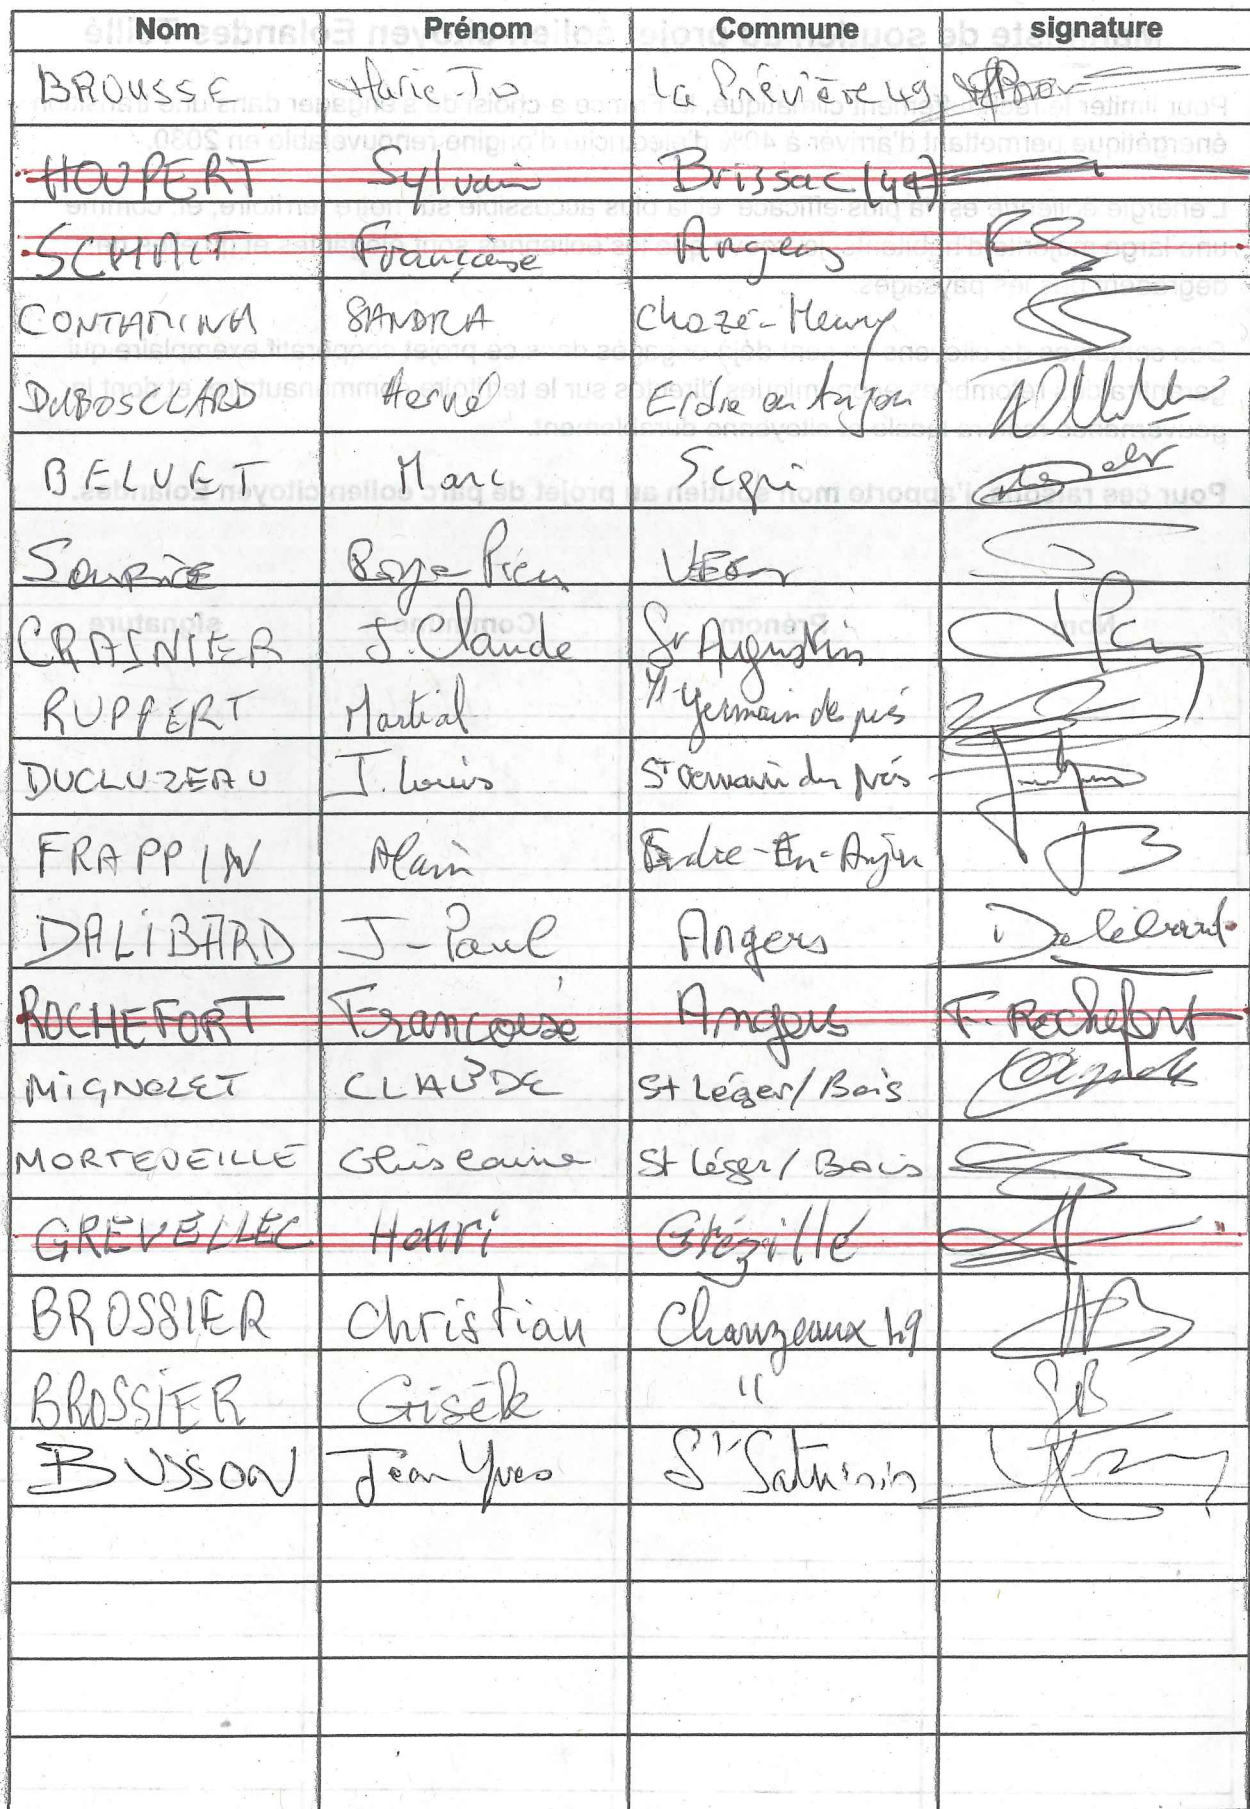 Nom Prénom Commune signature
BROUSSE Marie-Jo La Prévière 49
HOUPERT Sylvain Brissac (49)
SCHMIT Françoise Angers FS
CONTAMINA SANDRA Chazé-Henry
DUBOSCLARD Hervé Erdre en Anjou
BELUET Marc Segré
SOURICE
CRAINIER J. Claude St Augustin
RUPPERT Martial St Germain des prés
DUCLUZEAU J. Louis St Germain des Prés
FRAPPIN Alain Erdre-En-Anjou
DALIBARD J-Paul Angers Dalibard
ROCHEFORT Françoise Angers F. Rochefort
MIGNOLET CLAUDE St Léger/Bois
MORTEVEILLE Ghislaine St Léger/Bois
GREVELLEC Henri Grézillé
BROSSIER Christian Chanzeaux 49
BROSSIER Gisèle " GB
BUSSON Jean Yves St Saturnin